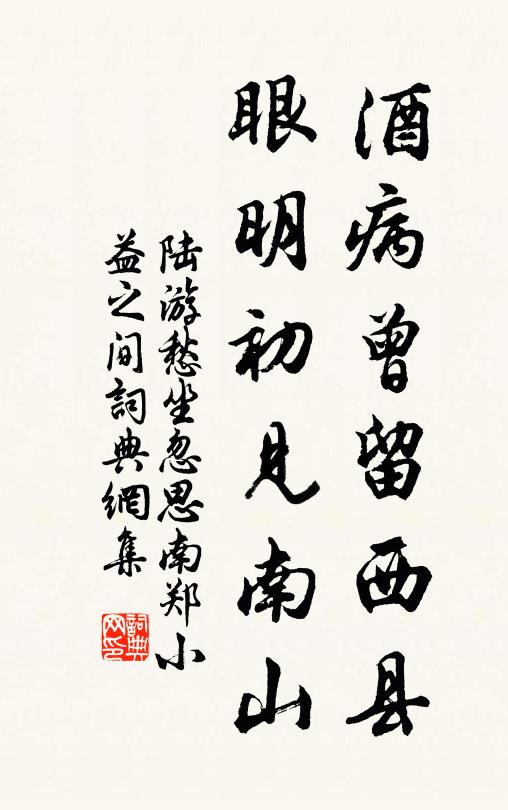 酒病曾留西县
眼明初见南山
陆游愁坐忽思南郑小
益之间詞典網集
詞典网印